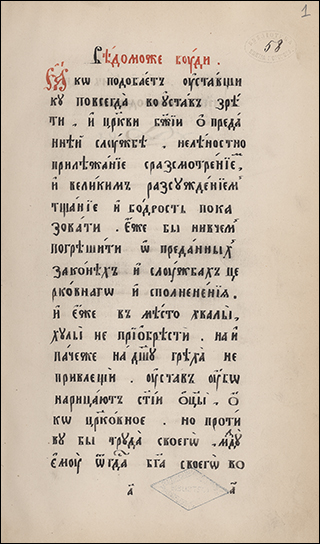 1
58
Вѣдоможе боуди .
Ꙗкѡ подобаетъ оуставщи
ку повсегда̀ во оуста́в зрѣ
ти . и҆ цр҃кви бж҃їи ѡ҆ преда́
ннѣй слоу́жбѣ . нелѣностно
прилѣжанїе сразсмотре́нїе,
и҆ великимъ разсужде́нїем
тщанїе и҆ бодрость пока
зовати . Е҆́же бы нивчем
погрѣши́ти ѿ преданных
зако́нѣхъ и҆ слоу́жбахъ це
рковнагѡ и҆ сполне́ненїѧ .
и҆ е҆́же въ мѣ́сто хвалы̀,
хꙋлы̀ не прїѡбрѣсти . на и҆
па́чеже на дш҃ꙋ грѣха̀ не
привлещѝ . оуста́в оу́бѡ
нарица́ютъ ст҃і́и ѻ҆ц҃ы̀ . ѻ҆́
кѡ цр҃ко́вное . но проти́
ву бы трꙋда̀ своегѡ̀ . мздꙋ̀
е҆моу̀ ѿ гдⷭ҇а̀ бг҃а своегѡ̀ во
а҃ а҃